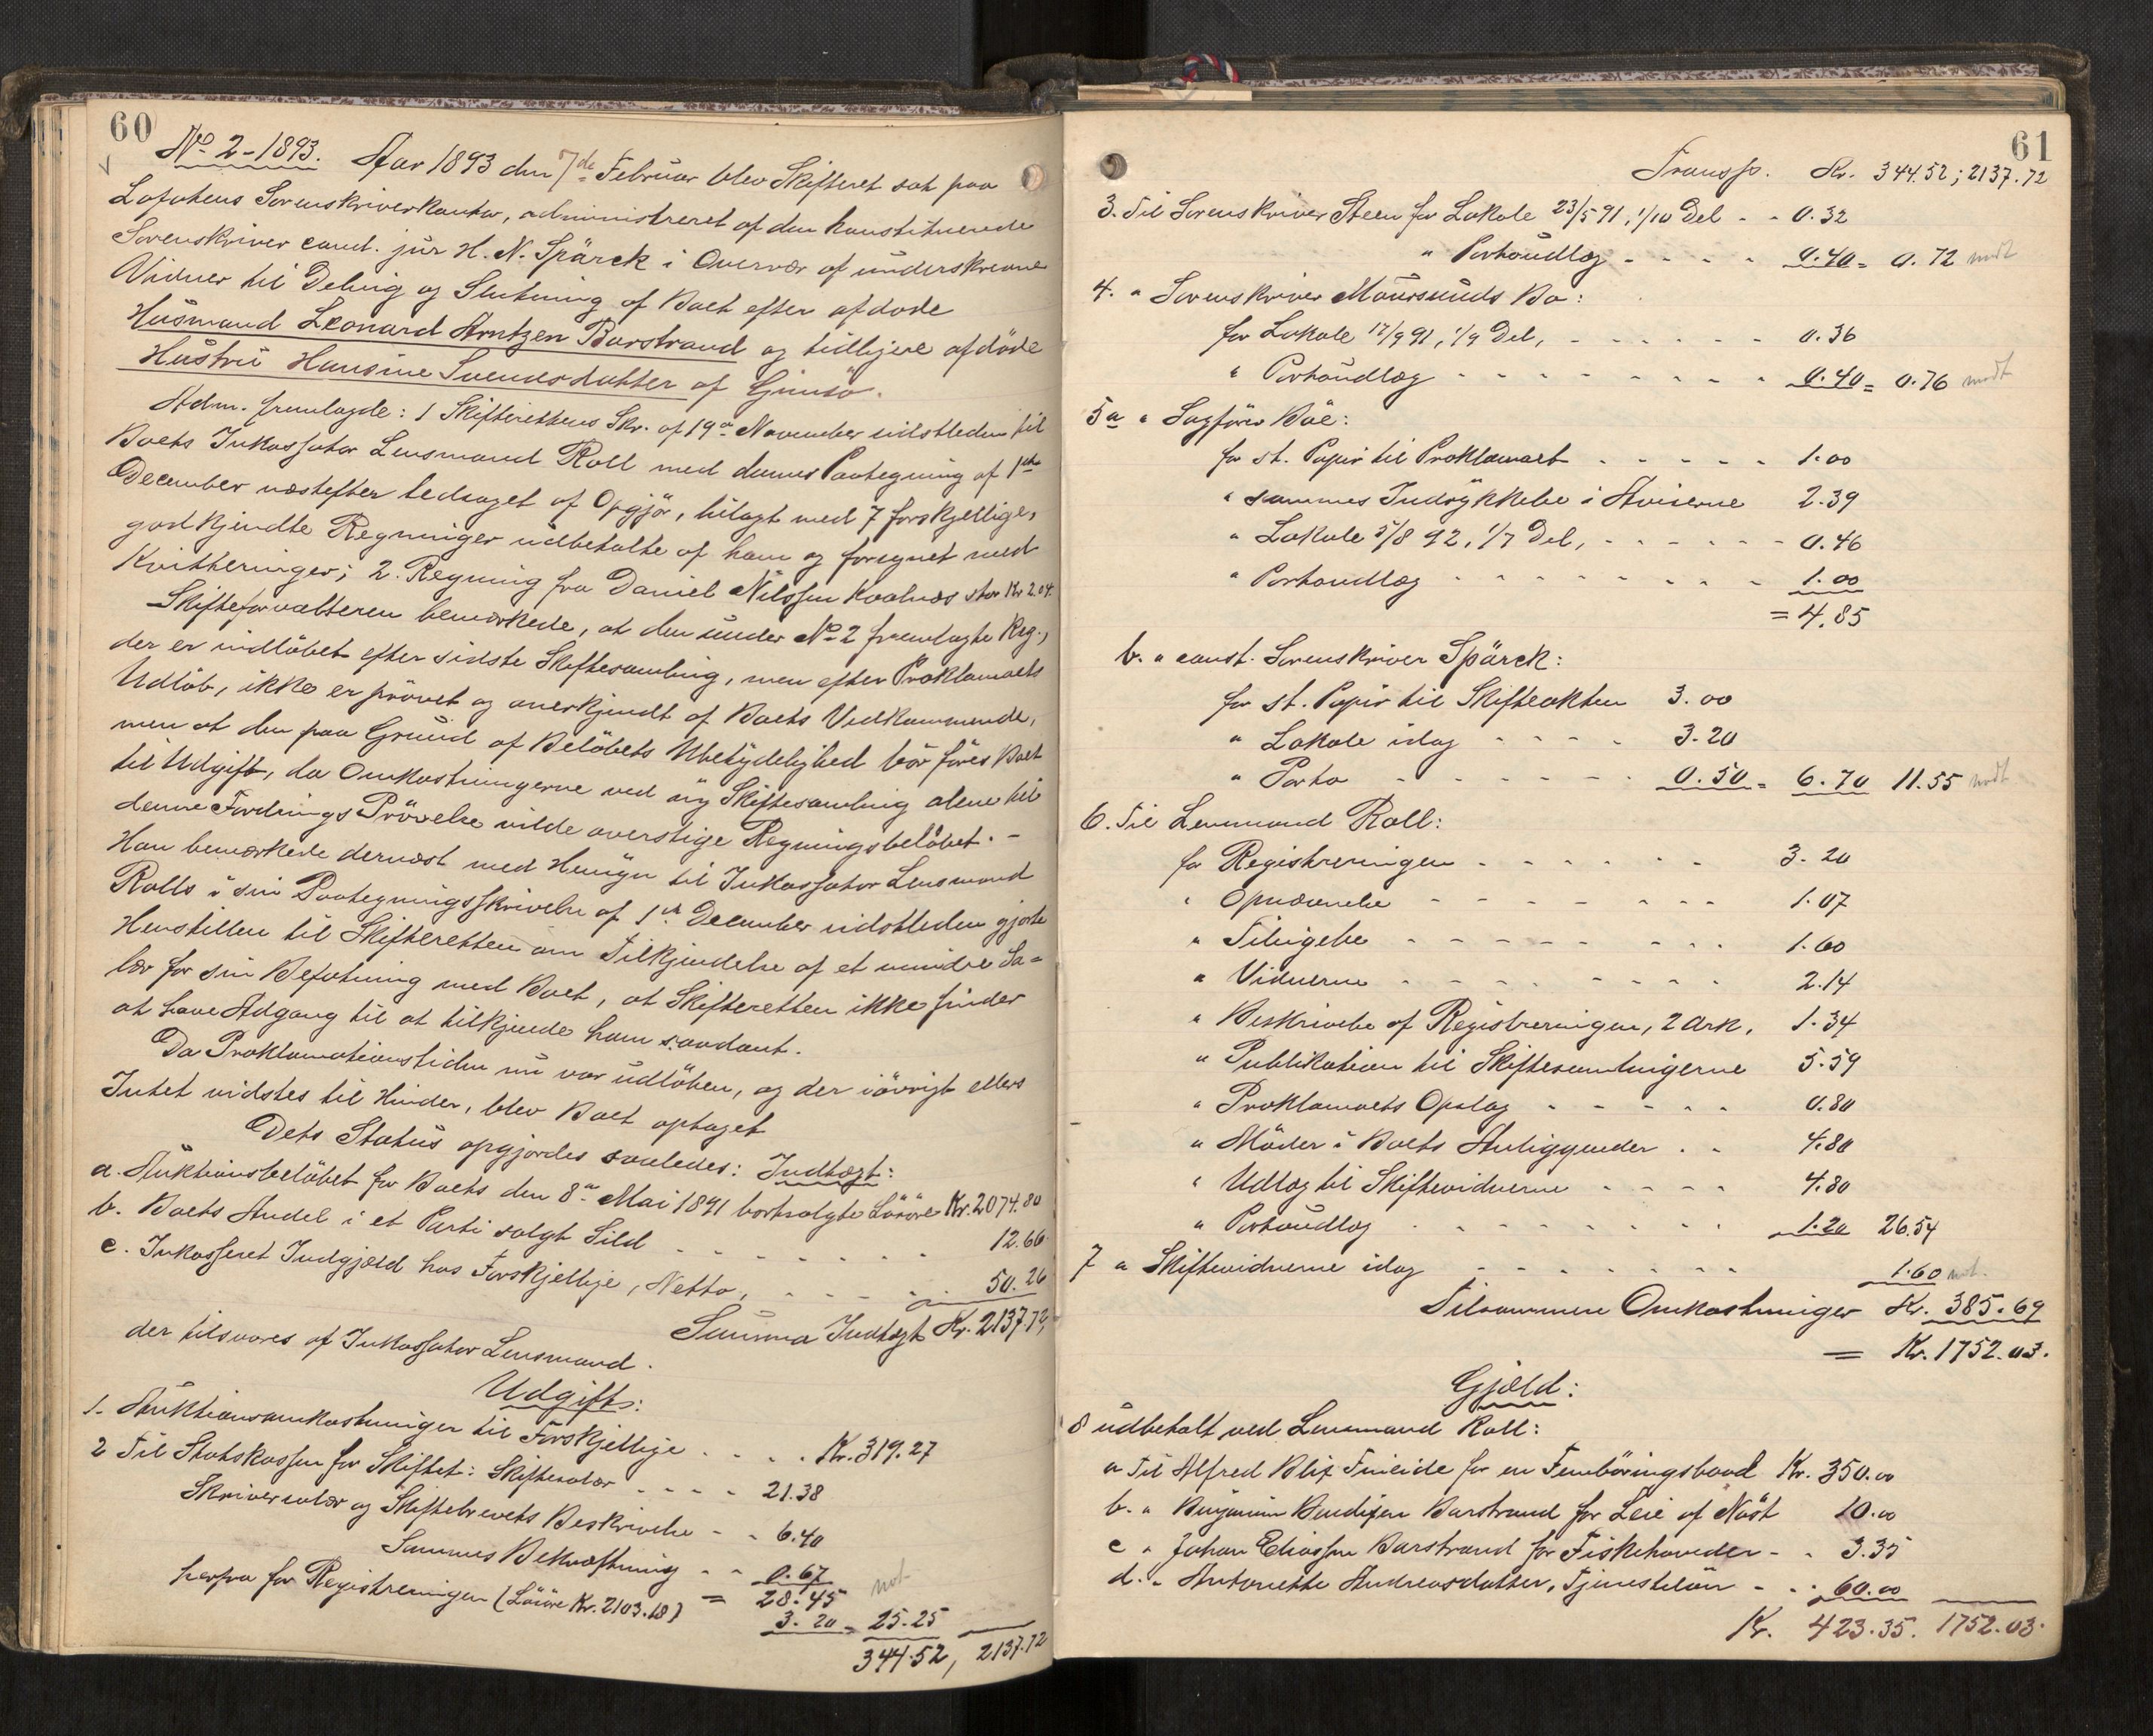 60
No 2-1893. Aar 1893 den 7de Februar blev Skifteret sat paa
Lofotens Sorenskriverkontor, administreret af den konstituerede
Sorenskriver cand. jur H. N. Spärck i Overvær af underskrevne
Vidner til Deling og Slutning af Boet efter afdøde
Husmand Leonard Arntzen Barstrand og tidligere afdøde
Hustru Hansine Svendsdatter af Gimsö.
Adm. fremlagde: 1 Skifterettens Skr. af 19de November sidstleden til
Boets Inkassator Lensmand Roll med dennes Paategning af 1ste
December næstefter ledsaget af Opgjör, bilagt med 7 forskjellige,
godkjendte Regninger udbetalte af ham og forsynet med
Kvitteringer; 2. Regning fra Daniel Nilssen Kvalnæs stor Kr 2.04.
Skifteforvalteren bemærkede, at den under No 2 fremlagte Reg.,
der er indlöbet efter sidste Skiftesamling, men efter Proklamaets
Udlöb, ikke er prövet og anerkjendt af Boets Vedkommende,
men at den paa Grund af Belöbets Ubetydelighed bör föres Boet
til Udgift, da Omkostningerne ved ny Skiftesamling alene til
denne Fordrings Prövelse vilde overstige Regningsbelöbet. -
Han bemærkede dernæst med Hensyn til Inkassator Lensmand
Rolls i sin Paategningsskrivelse af 1ste December sidstleden gjorte
Henstillen til Skifteretten om Tilkjendelse af et mindre Sa-
lær for sin Befatning med Boet, at Skifteretten ikke finder
at have Adgang til at tilkjende ham saadant.
Da Proklamationstiden nu var udlöben, og der iövrigt ellers
Intet vidstes til Hinder, blev Boet optaget
Dets Status opgjordes saaledes: Indtægt:
a. Auktionsbelöbet for Boets den 8de Mai 1891 bortsolgte Lösöre Kr. 2074.80
b. Boets Andel i et Parti solgt Sild - - - - - - - 12.66
c. Inkasseret Indgjæld hos Forskjellige, Netto, - - - - 50.26
Summa Indtægt Kr. 2137.72,
der tilsvares af Inkassator Lensmand.
Udgift:
1. Auktionsomkostninger til Forskjellige . . . . Kr. 319.27
2 Til Statskassen for Skiftet: Skiftesalær - - - - 21.38
Skriversalær og Skiftebrevets Beskrivelse - - 6.40
Sammes Bekræftning - - 0.67
= 28.45
herfra for Registreringen (Lösöre Kr. 2103.18) 3.20 = 25.25
344.52, 2137.72
61
Transp. Kr. 344.52; 2137.72
3. Til Sorenskriver Steen for Lokale 23/5 91, 1/10 Del - - 0.32
" Portoudlæg - - - - 0.40 = 0.72
4. " Sorenskriver Moursunds Bo:
for Lokale 17/9 91, 1/9 Del, - - - - - - 0.36
" Portoudlæg - - - - - - - - 0.40 = 0.76
5 a " Sagförer Böe:
for st. Papir til Proklamaet - - - - - 1.00
" sammes Indrykkelse i Aviserne 2.39
" Lokale 5/8 92, 1/7 Del, - - - - - - 0.46
" Portoudlæg - - - - - - - - 1.00
= 4.85
b. " const. Sorenskriver Spärck:
for st. Papir til Skifteakten 3.00
" Lokale idag - - - - 3.20
" Porto - - - - - - 0.50 = 6.70 11.55
6. Til Lensmand Roll:
for Registreringen - - - - - - 3.20
" Opnævnelse - - - - - - - 1.07
" Tilsigelse - - - - - - - - 1.60
" Vidnerne - - - - - - - - 2.14
" Beskrivelse af Registreringen, 2 Ark, 1.34
" Publikation til Skiftesamlingerne 5.59
" Proklamaets Opslag - - - - - 0.80
" Möder i Boets Anliggender . - 4.80
" Udlæg til Skiftevidnerne - - - - 4.80
" Portoudlæg - - - - - - - - 1.20 26.54
7 " Skiftevidnerne idag - - - - - - - 1.60
Tilsammen Omkostninger Kr. 385.69
= Kr. 1752.03.
Gjæld:
8 udbetalt ved Lensmand Roll:
a Til Alfred Blix Fineide for en Femböringsbaad Kr. 350.00
b. " Benjamin Bendixen Barstrand for Leie af Nöst 10.00
c " Johan Eliassen Barstrand for Fiskehoveder - - 3.35
d. " Antonette Andreasdatter, Tjenestelön - - - 60.00
Kr. 423.35. 1752.03.